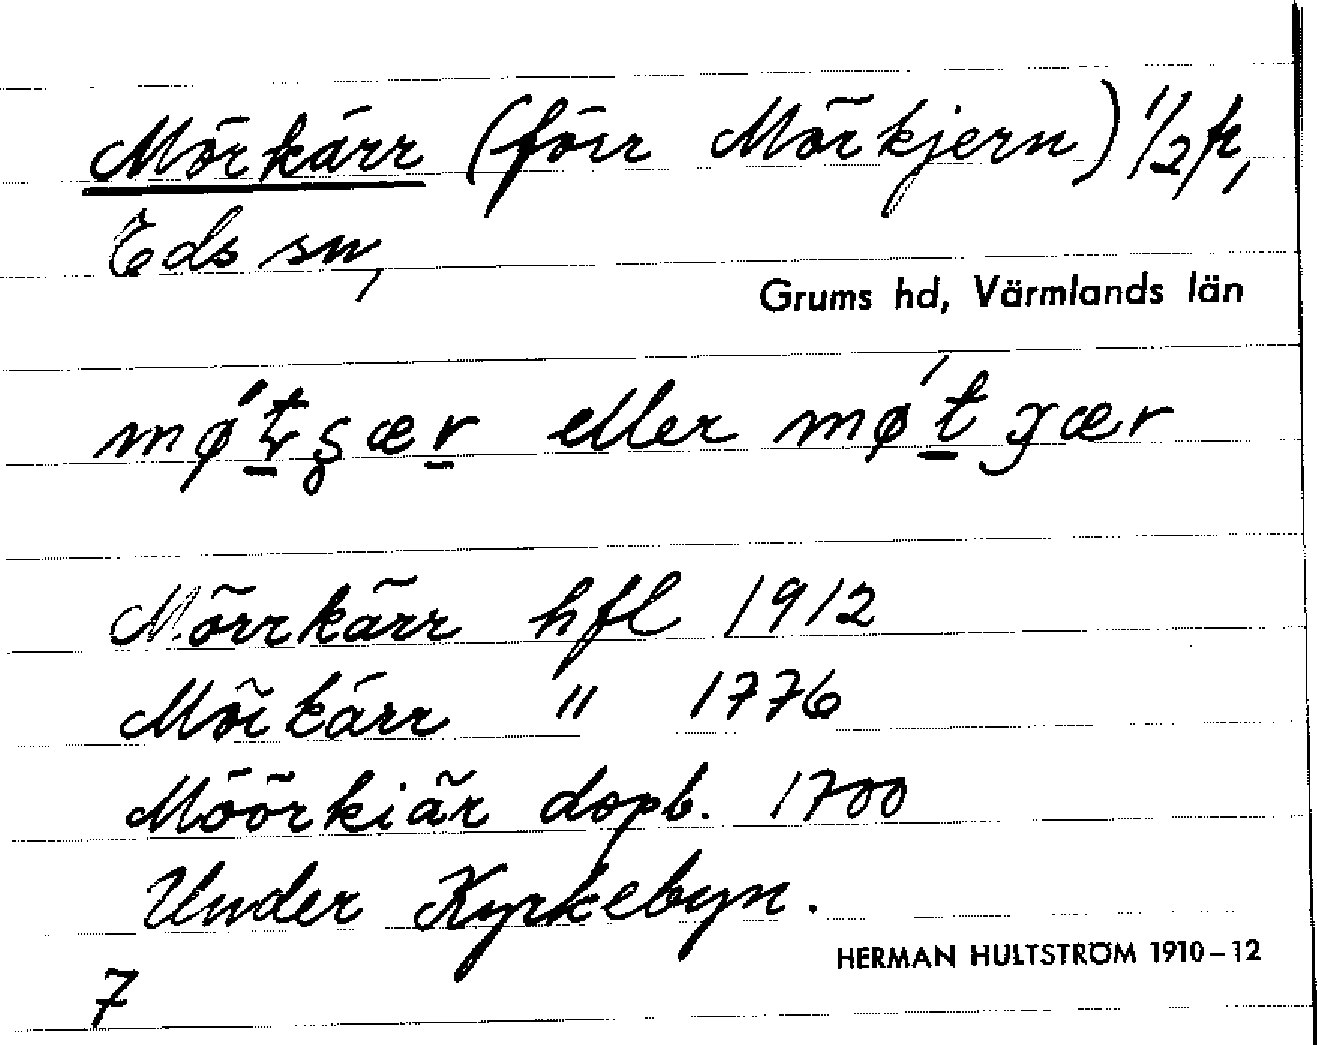 Mörkärr (förr Mörkjern) 1/2 h,
Eds sn,
Grums hd, Värmlands län
eller
Mörrkärr hfl 1912
Mörkärr " 1776
Möörkiär dopb. 1700
Under Kyrkebyn.
HERMAN HULTSTRÖM 1910-12
7